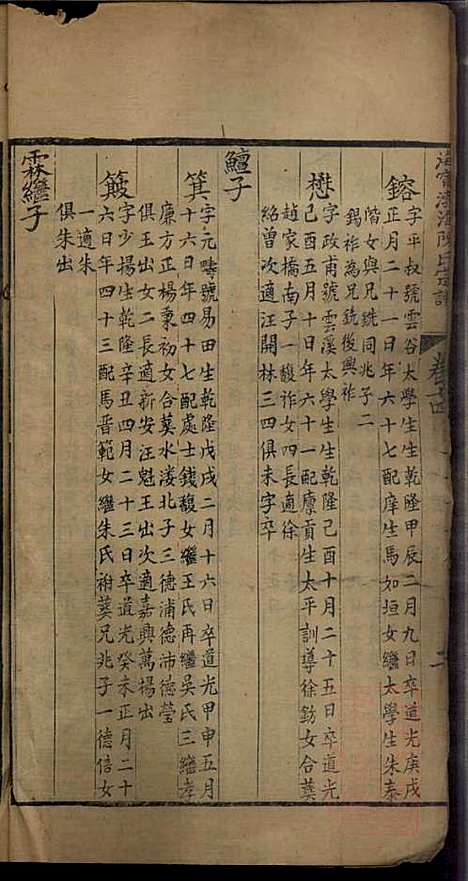 海寧渤海陳氏宗譜
卷十四
鎔
字平叔號雲谷太學生生乾隆甲辰二月九日卒道光庚戌
正月二十一日年六十七配庠生馬如垣女繼太學生朱泰
階女與兄珗同兆子二
錫祚為兄銑後興祚
懋
字政甫號雲溪太學生生乾隆己酉十月二十五日卒道光
己酉五月十日年六十一配廩貢生太平訓導徐鈁女合葬
趙家橋南子一馥祚女四長適徐
紹曾次適汪開林三四俱未字卒
鱣子
箕
字元疇號易田生乾隆戊戌二月十六日卒道光甲申五月
十六日年四十七配處士錢馥女繼王氏再繼吳氏三繼孝
廉方正楊秉初女合葬水漊北子三德浦德沛德瑩
俱王出女二長適新安汪魁王出次適嘉興萬楊出
簸
字少揚生乾隆辛丑四月二十三日卒道光癸未正月二十
六日年四十三配馬晋範女繼朱氏祔葬兄兆子一德倍女
一適朱
俱朱出
霖繼子